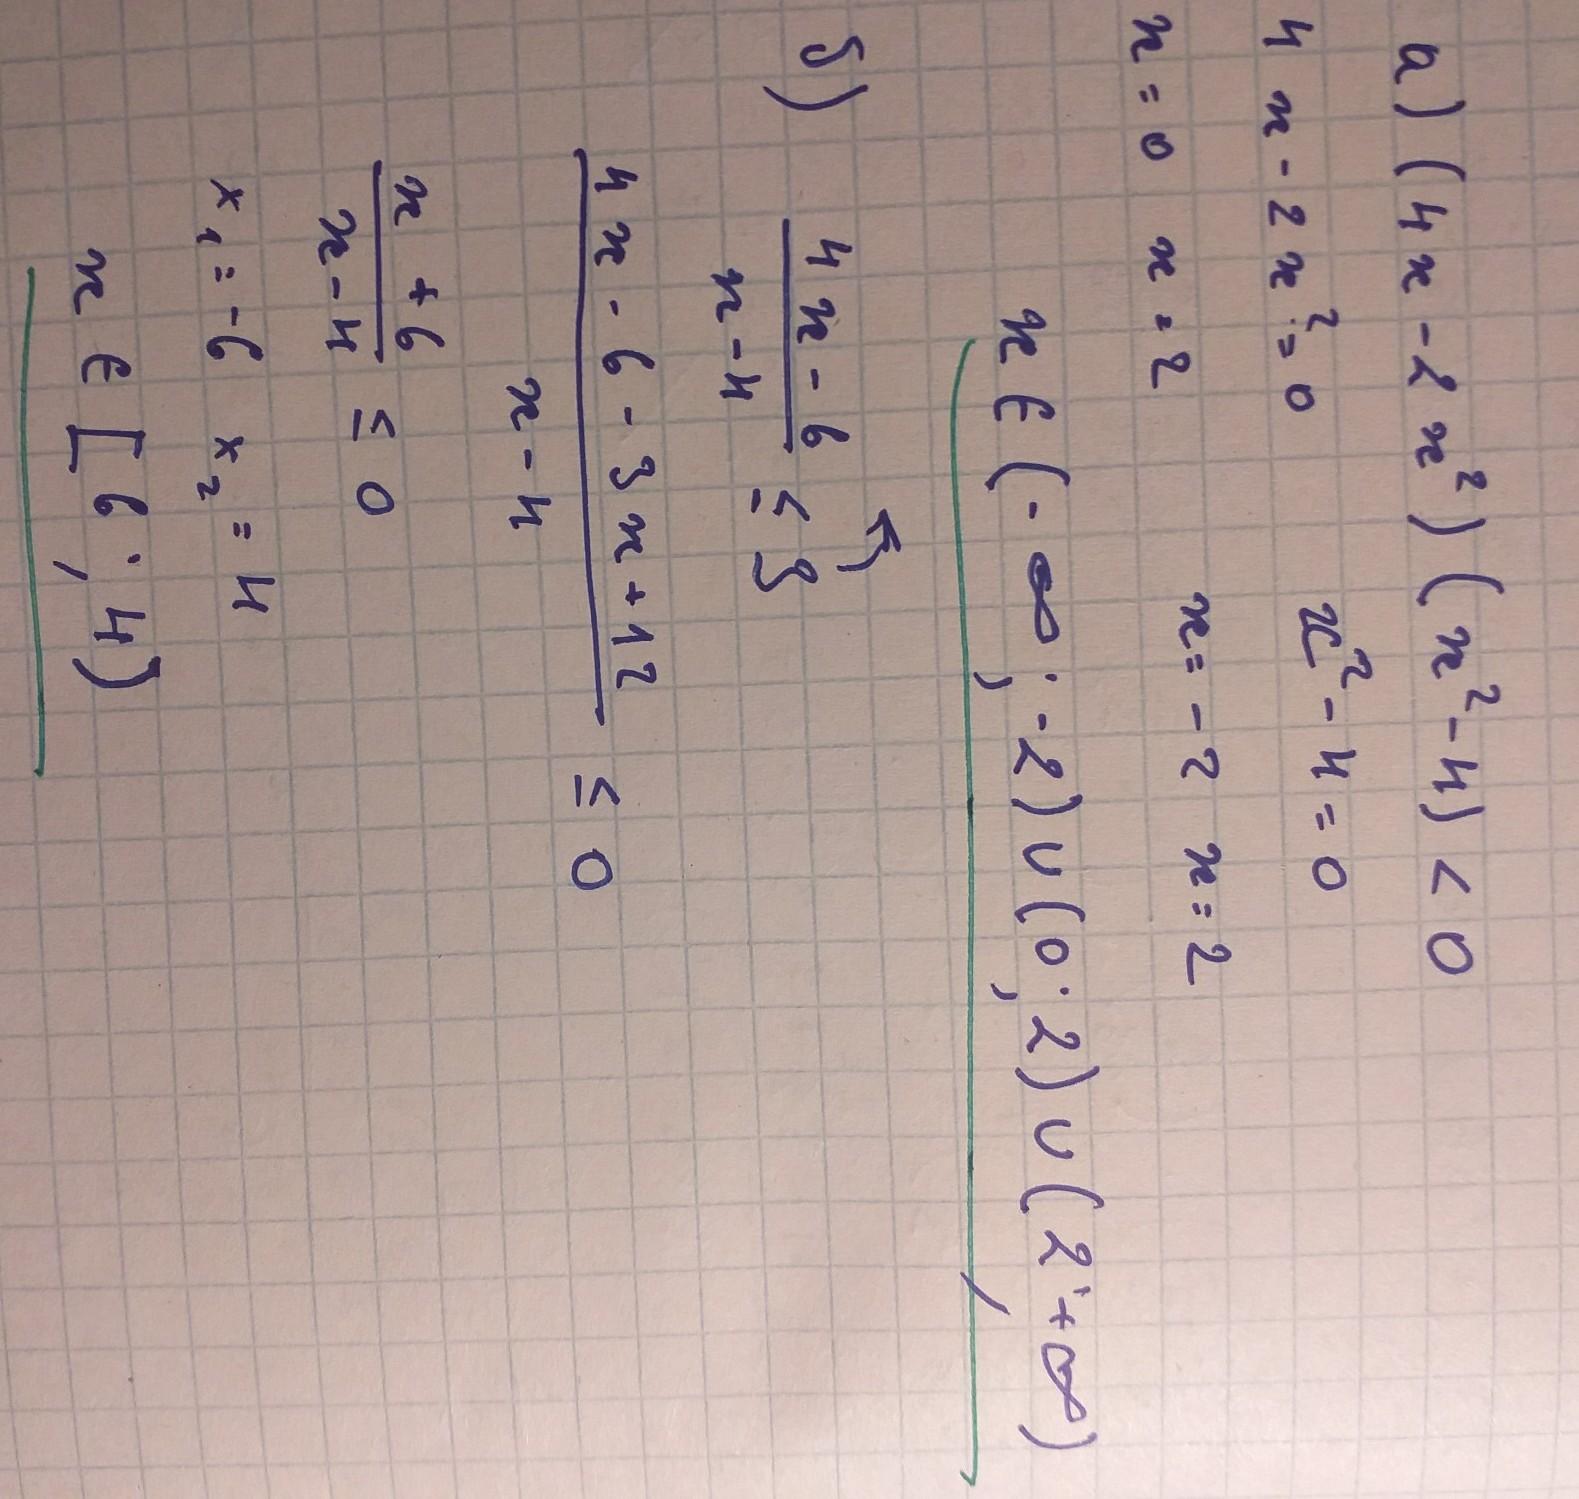 а) (4x-2x²)(x²-4)<0
4x-2x²=0 x²-4=0
x=0 x=2 x=-2 x=2
x∈(-∞;-2)∪(0;2)∪(2;+∞)
б) (4x-6)/(x-4) ≤ 3
(4x-6-3x+12)/(x-4) ≤ 0
(x+6)/(x-4) ≤ 0
x₁=-6 x₂=4
x∈[6;4)